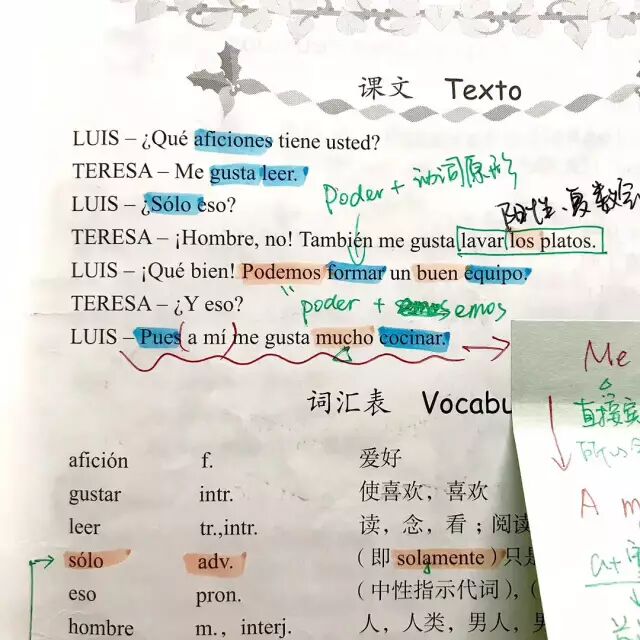 课文 Texto
LUIS – ¿Qué aficiones tiene usted?
TERESA – Me gusta leer.
LUIS – ¿Sólo eso?
poder + 动词原形
阳性、复数
TERESA – ¡Hombre, no! También me gusta lavar los platos.
LUIS – ¡Qué bien! Podemos formar un buen equipo.
TERESA – ¿Y eso?
poder + emos
LUIS – Pues a mí me gusta mucho cocinar.
Me
词汇表 Vocabu
直接
所以
afición f. 爱好
gustar intr. 使喜欢，喜欢
A m
leer tr.,intr. 读，念，看；阅读
sólo adv. （即 solamente）只
a+
eso pron. （中性指示代词），（
hombre m., interj. 人，人类，男人，男